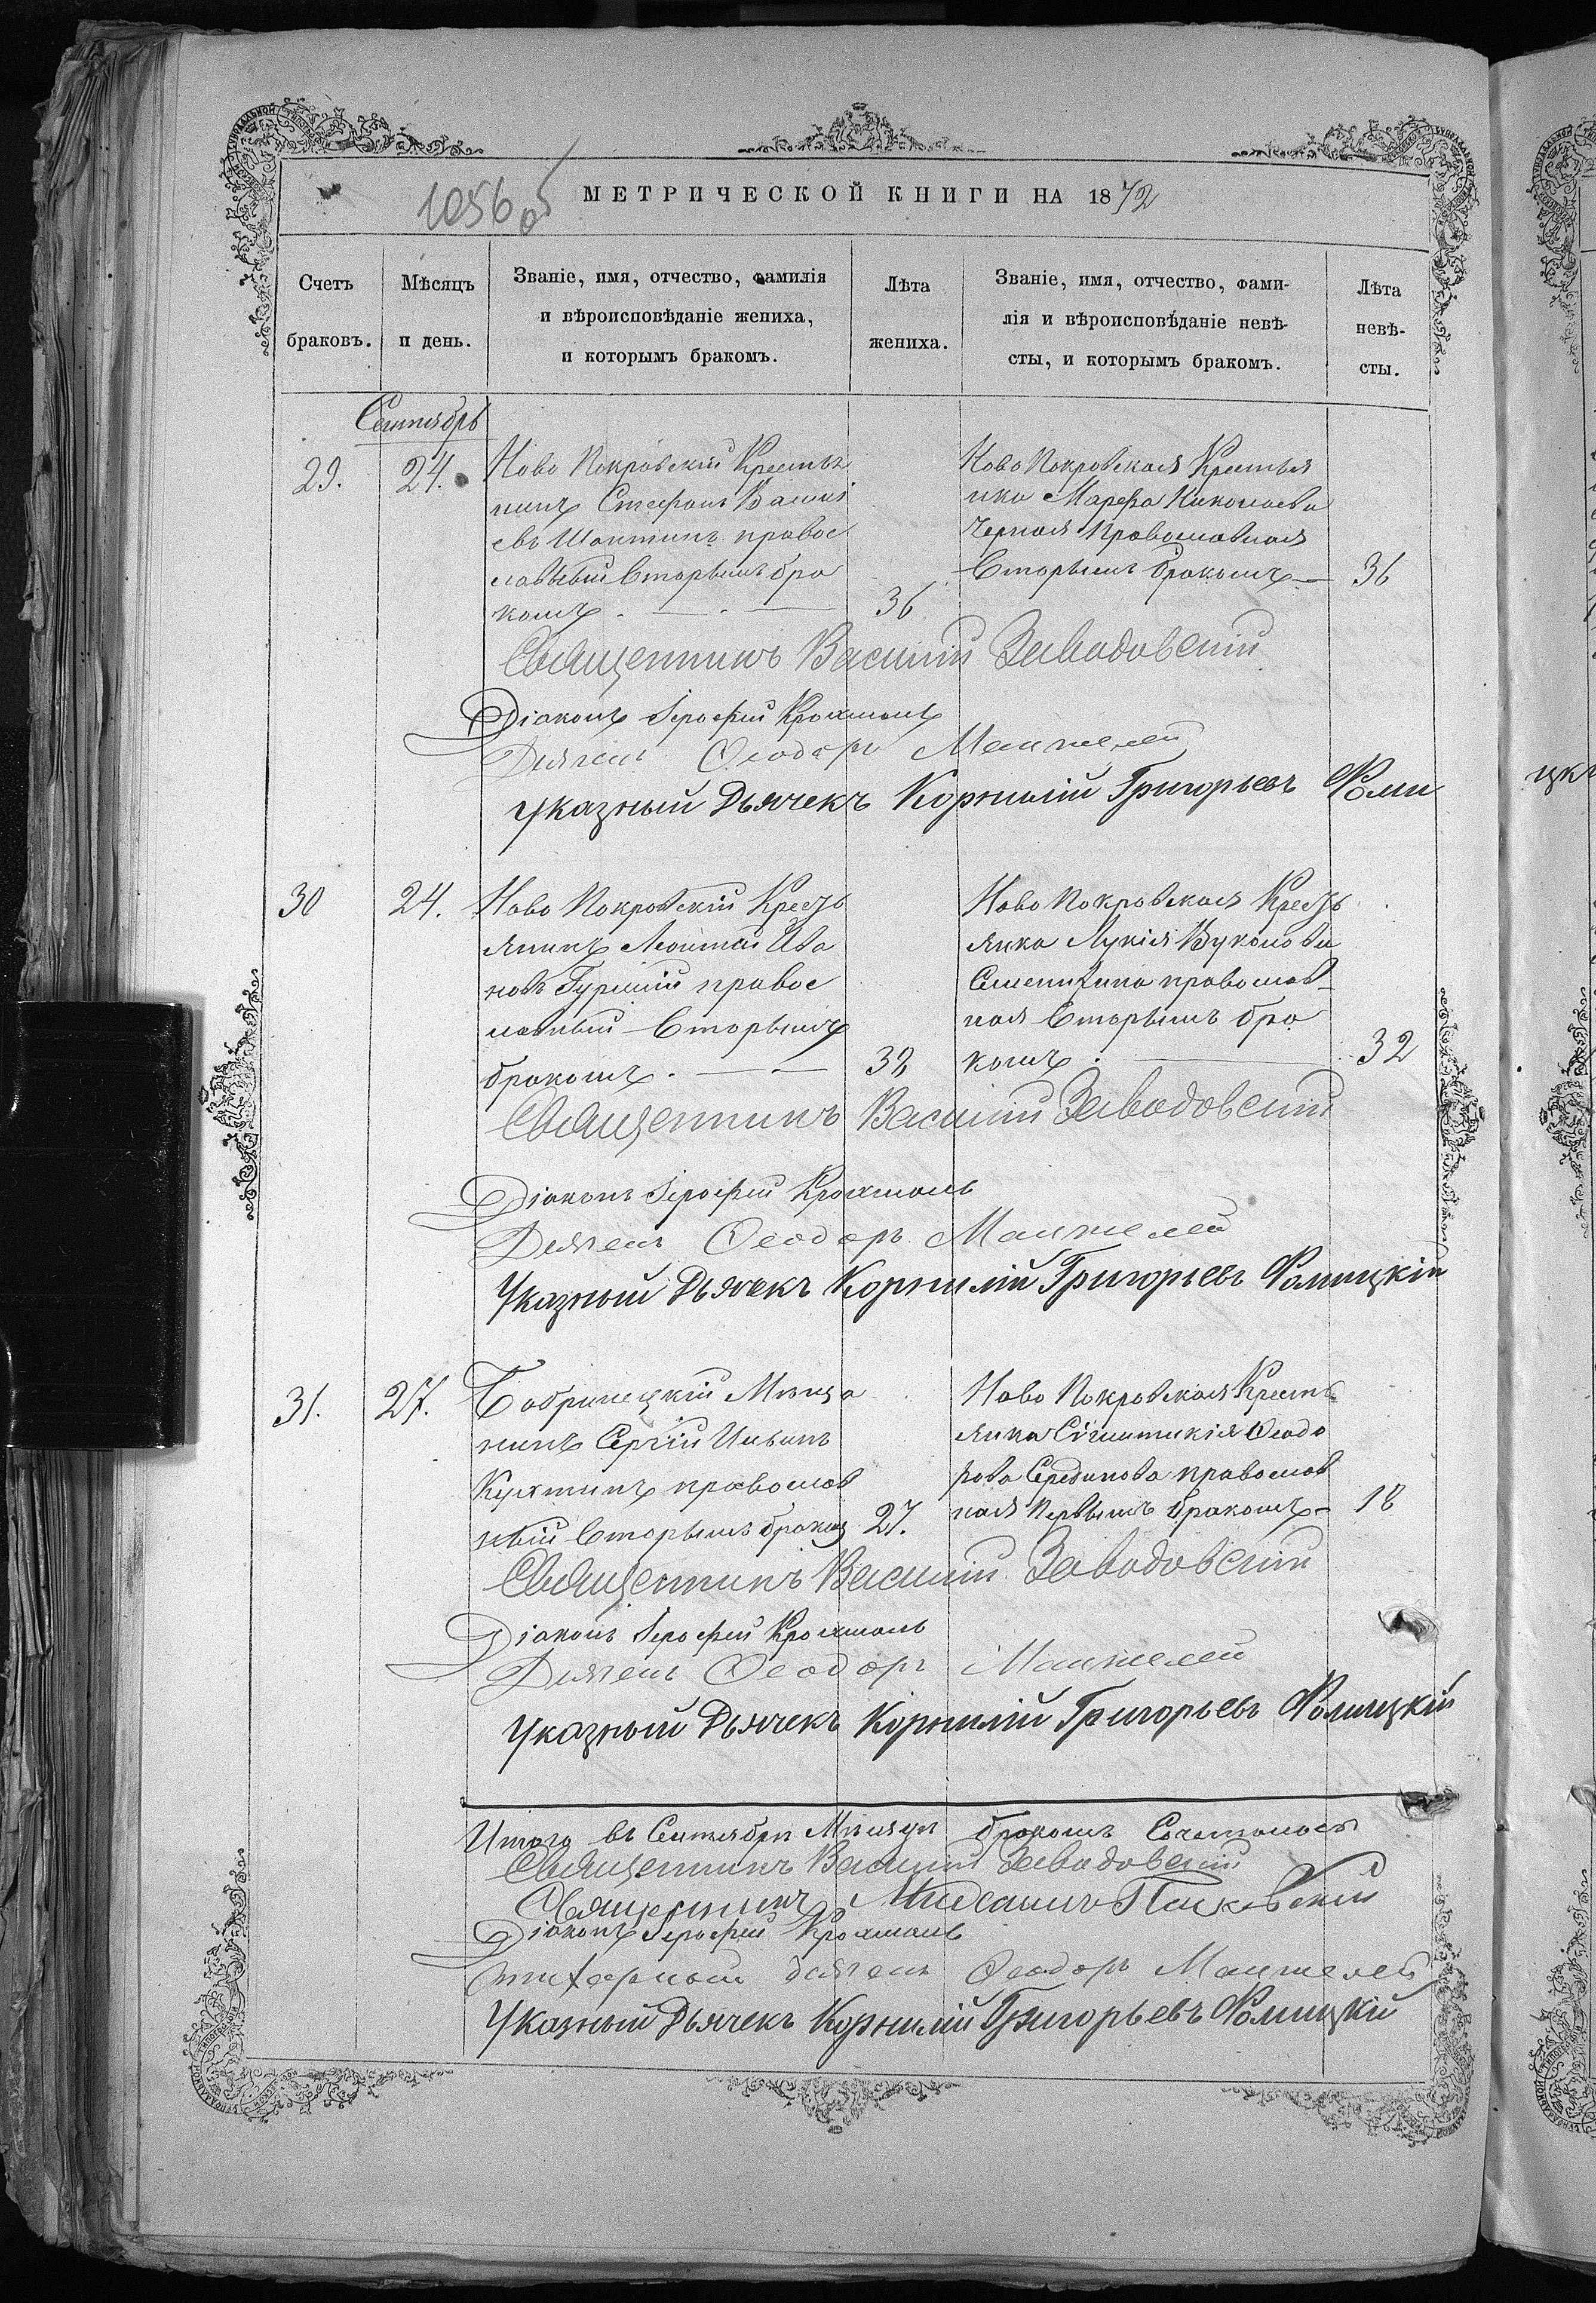 1056 об
МЕТРИЧЕСКОЙ КНИГИ НА 1872
Счетъ браковъ.
Мѣсяцъ и день.
Званіе, имя, отчество, фамилія
и вѣроисповѣданіе жениха,
и которымъ бракомъ.
Лѣта жениха.
Званіе, имя, отчество, фами-
лія и вѣроисповѣданіе невѣ-
сты, и которымъ бракомъ.
Лѣта невѣ-
сты.
Сентябрь
29. 24.
Ново Покровскій Крестья
нинъ Стефанъ Васильі
евъ правос
лавный вторымъ бра
комъ. 36
Ново Покровская Крестья
нка Марфа Николаева
Черная православная
вторымъ бракомъ 36
Священникъ Василій Заводовскій
Діаконъ Іерофей Крохмаль
Дьячекъ Ѳеодоръ Манжелей
Указный Дьячекъ Корнилій Григорьевъ Фоми
30 24.
Ново Покровскій Кресть
янинъ Ива
новъ правос
лавный вторымъ
бракомъ. 32
Ново Покровская Кресть
янка Лукія Вуколова
православ-
ная вторымъ бра
комъ. 32
Священникъ Василій Заводовскій
Діаконъ Іерофей Крохмаль
Дьячекъ Ѳеодоръ Манжелей
Указный Дьячекъ Корнилій Григорьевъ Фомицкій
31. 27.
Бобринецкій Мѣща
нинъ Сергій Ильинъ
православ
ный вторымъ бракомъ 27.
Ново Покровская Кресть
янка Ѳеодо
рова православ
ная первымъ бракомъ 18
Священникъ Василій Заводовскій
Діаконъ Іерофей Крохмаль
Дьячекъ Ѳеодоръ Манжелей
Указный Дьячекъ Корнилій Григорьевъ Фомицкій
Итого въ Сентябрѣ Мѣсяцѣ бракомъ Сочеталось
Священникъ Василій Заводовскій
Священникъ
Діаконъ Іерофей Крохмаль
дьячекъ Ѳеодоръ Манжелей
Указный Дьячекъ Корнилій Григорьевъ Фомицкій